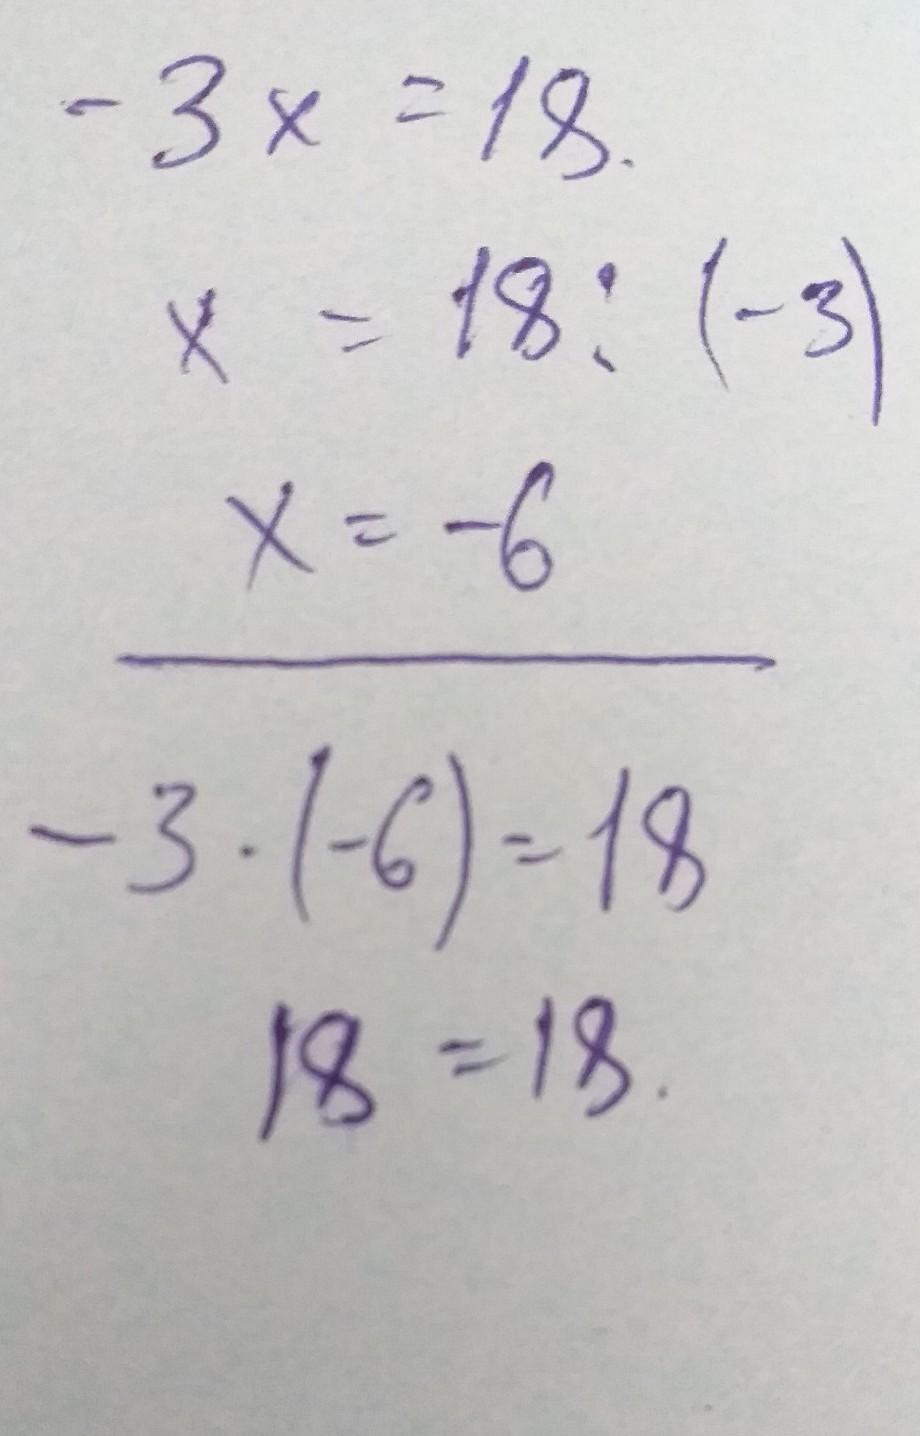 -3x = 18.
x = 18 : (-3)
x = -6
-3 · (-6) = 18
18 = 18.